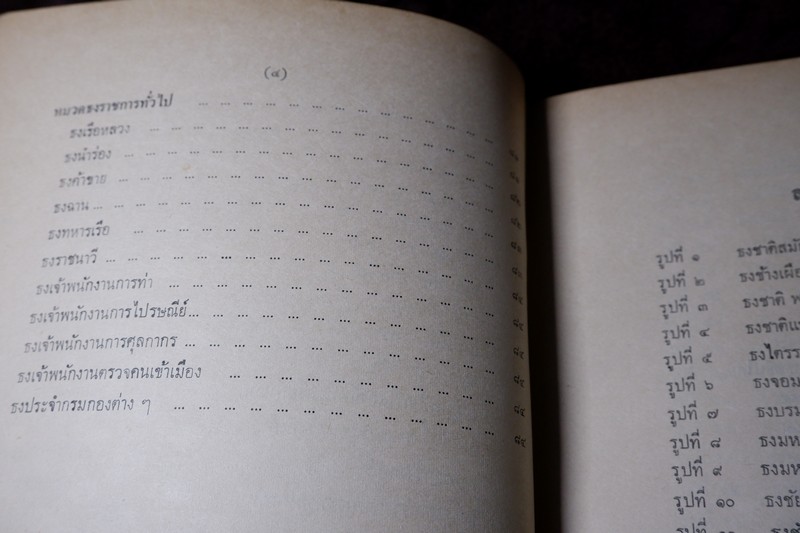 (๔)
หมวดธงราชการทั่วไป ... ... ... ... ... ... ... ... ... ... ... ...
ธงเรือหลวง ... ... ... ... ... ... ... ... ... ... ... ... ... ...
ธงนำร่อง ... ... ... ... ... ... ... ... ... ... ... ... ... ... ...
ธงค้าขาย ... ... ... ... ... ... ... ... ... ... ... ... ... ... ...
ธงฉาน ... ... ... ... ... ... ... ... ... ... ... ... ... ... ... ...
ธงทหารเรือ ... ... ... ... ... ... ... ... ... ... ... ... ... ...
ธงราชนาวี ... ... ... ... ... ... ... ... ... ... ... ... ... ... ...
ธงเจ้าพนักงานการท่า ... ... ... ... ... ... ... ... ... ... ... ... ๘๔
ธงเจ้าพนักงานการไปรษณีย์ ... ... ... ... ... ... ... ... ... ... ... ... ๘๔
ธงเจ้าพนักงานการศุลกากร ... ... ... ... ... ... ... ... ... ... ... ... ๘๔
ธงเจ้าพนักงานตรวจคนเข้าเมือง ... ... ... ... ... ... ... ... ... ... ... ๘๔
ธงประจำกรมกองต่าง ๆ ... ... ... ... ... ... ... ... ... ... ... ... ... ๘๔
รูปที่ ๑ ธงชาติสมั
รูปที่ ๒ ธงช้างเผือ
รูปที่ ๓ ธงชาติ พ
รูปที่ ๔ ธงชาติแ
รูปที่ ๕ ธงไตรร
รูปที่ ๖ ธงจอม
รูปที่ ๗ ธงบรม
รูปที่ ๘ ธงมห
รูปที่ ๙ ธงมห
รูปที่ ๑๐ ธงชัย
รูปที่